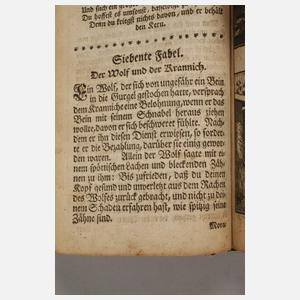 Und sich ein
Du hoffest es umsonst, derselbige
Denn du kriegst nichts davon, und er behält
den Kern.
Siebente Fabel.
Der Wolf und der Krannich.
Ein Wolf, der sich von ungefähr ein Bein
in die Gurgel gestochen hatte, versprach
dem Kranniche eine Belohnung, wenn er das
Bein mit seinem Schnabel heraus ziehen
wollte, davon er sich beschweret fühlte. Nach-
dem er ihn diesen Dienst erwiesen, so forder-
te er die Bezahlung, darüber sie einig gewor-
den waren. Allein der Wolf sagte mit ei-
nem spöttischen Lachen und bleckenden Zäh-
nen zu ihm: Bis zufrieden, daß du deinen
Kopf gesund und unverletzt aus dem Rachen
des Wolfes zurück gebracht, und nicht zu dei-
nem Schaden erfahren hast, wie spitzig seine
Zähne sind.
Mora-